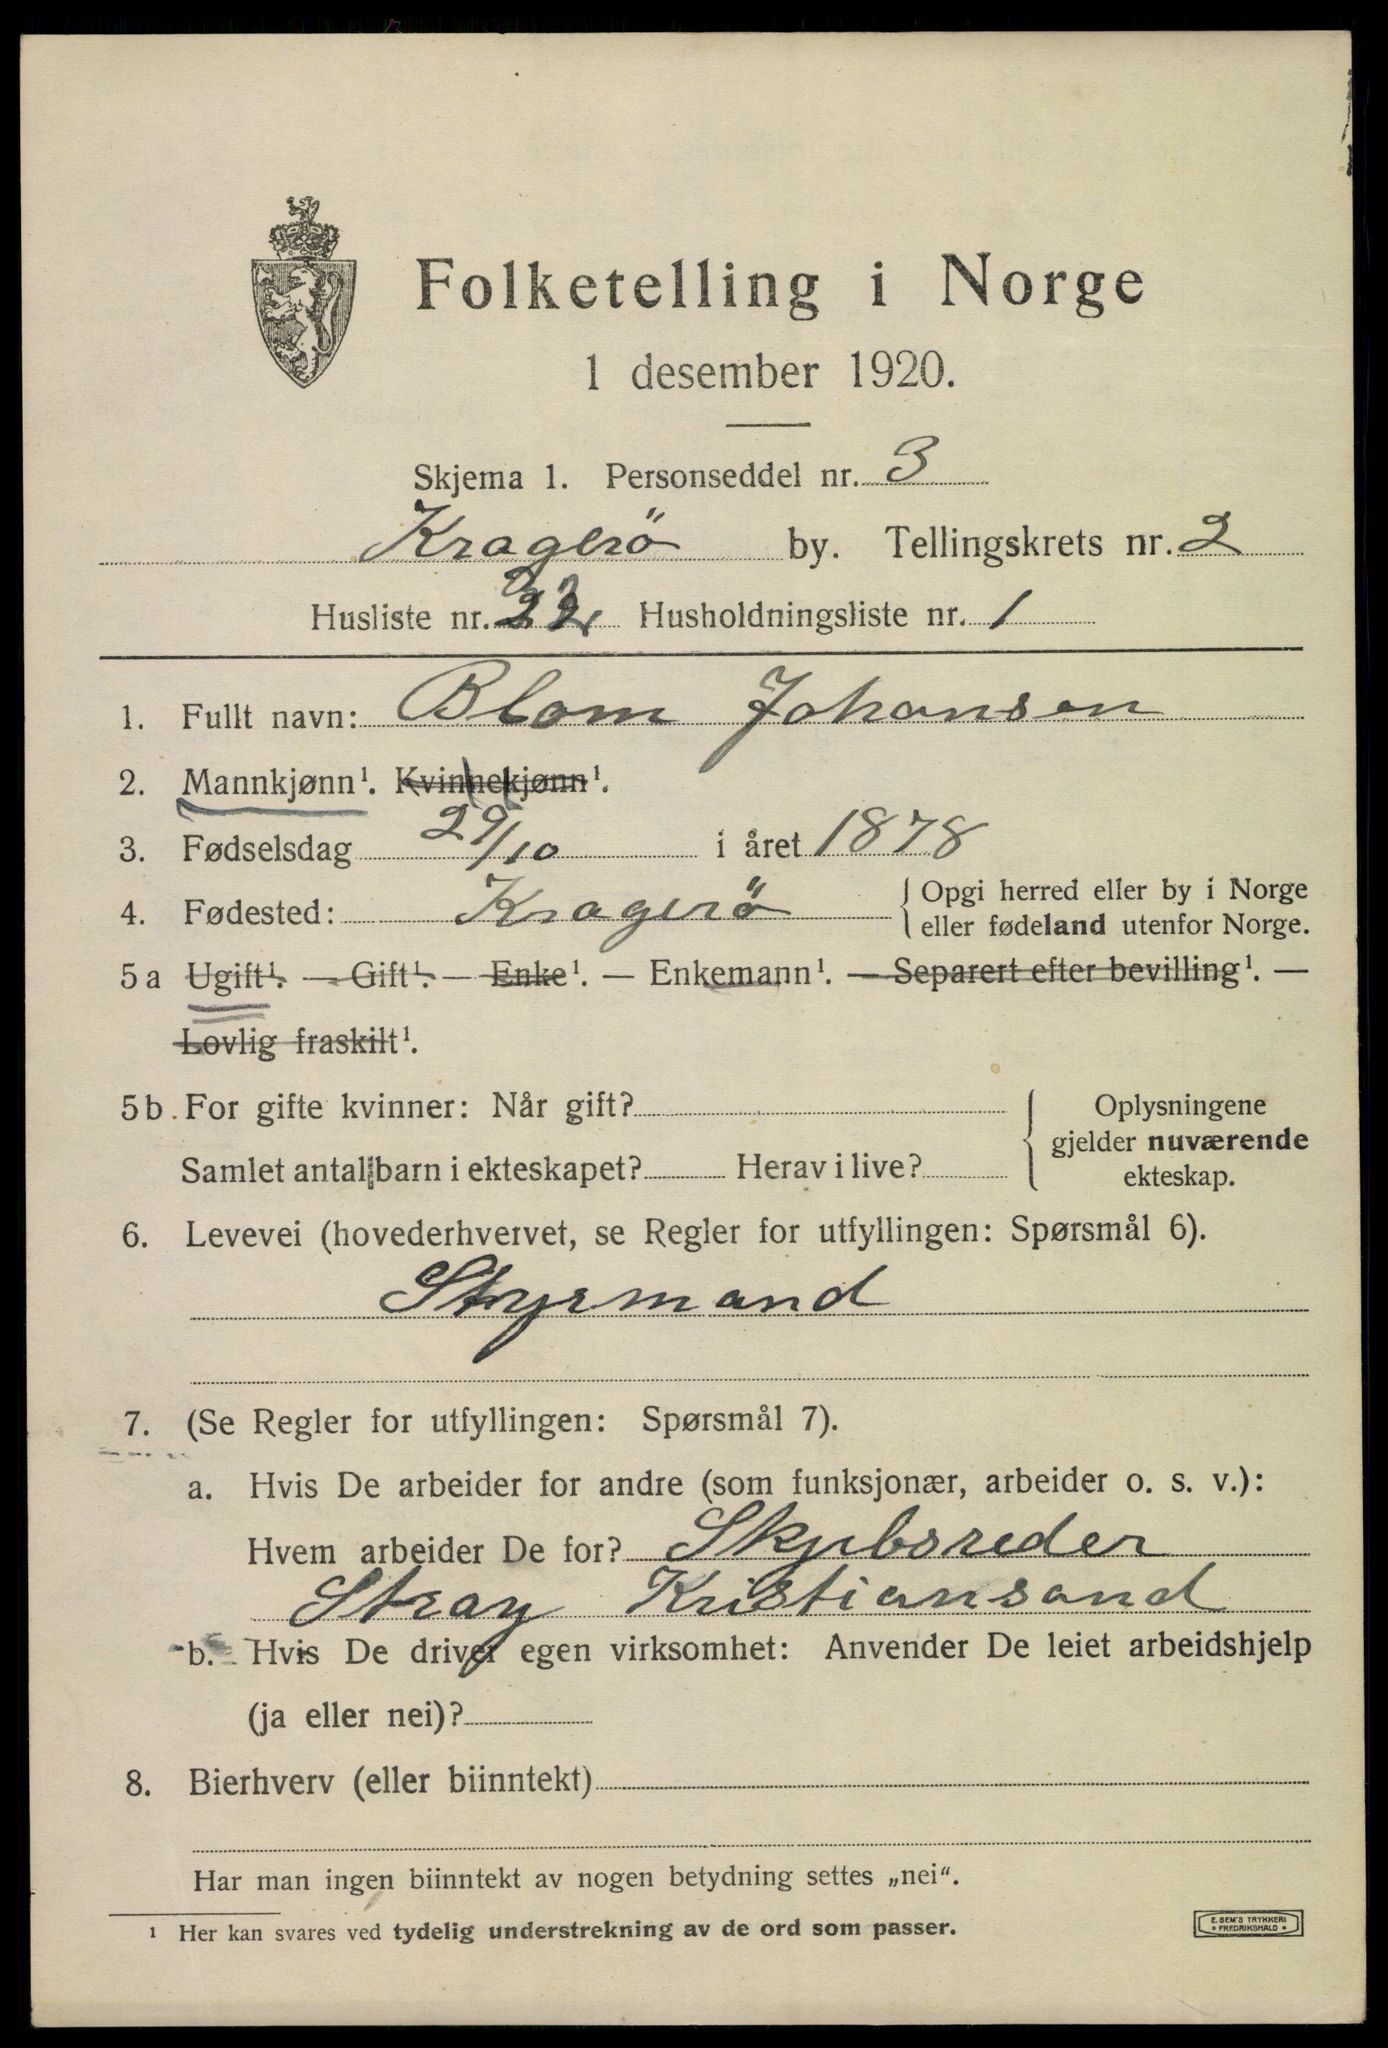 Folketelling i Norge
1 desember 1920.
Skjema 1. Personseddel nr. 3
Kragerö by. Tellingskrets nr. 2
Husliste nr. Husholdningsliste nr. 1
1. Fullt navn: Blom Johansen
2. Mannkjønn¹. Kvinnekjønn¹.
3. Fødselsdag 29/10 i året 1878
4. Fødested: Kragerö { Opgi herred eller by i Norge
eller fødeland utenfor Norge.
5a Ugift¹. — Gift¹. — Enke¹. — Enkemann¹. — Separert efter bevilling¹. —
Lovlig fraskilt¹.
5b. For gifte kvinner: Når gift?
Samlet antal barn i ekteskapet? Herav i live?
{ Oplysningene
gjelder nuværende
ekteskap.
6. Levevei (hovederhvervet, se Regler for utfyllingen: Spørsmål 6).
Styrmand
7. (Se Regler for utfyllingen: Spørsmål 7).
a. Hvis De arbeider for andre (som funksjonær, arbeider o. s. v.):
Hvem arbeider De for? Skjibsreder
Stray Kristiansand
b. Hvis De driver egen virksomhet: Anvender De leiet arbeidshjelp
(ja eller nei)?
8. Bierhverv (eller biinntekt)
Har man ingen biinntekt av nogen betydning settes „nei“.
¹ Her kan svares ved tydelig understrekning av de ord som passer.
E. SEM'S TRYKKERI
• FREDRIKSHALD •